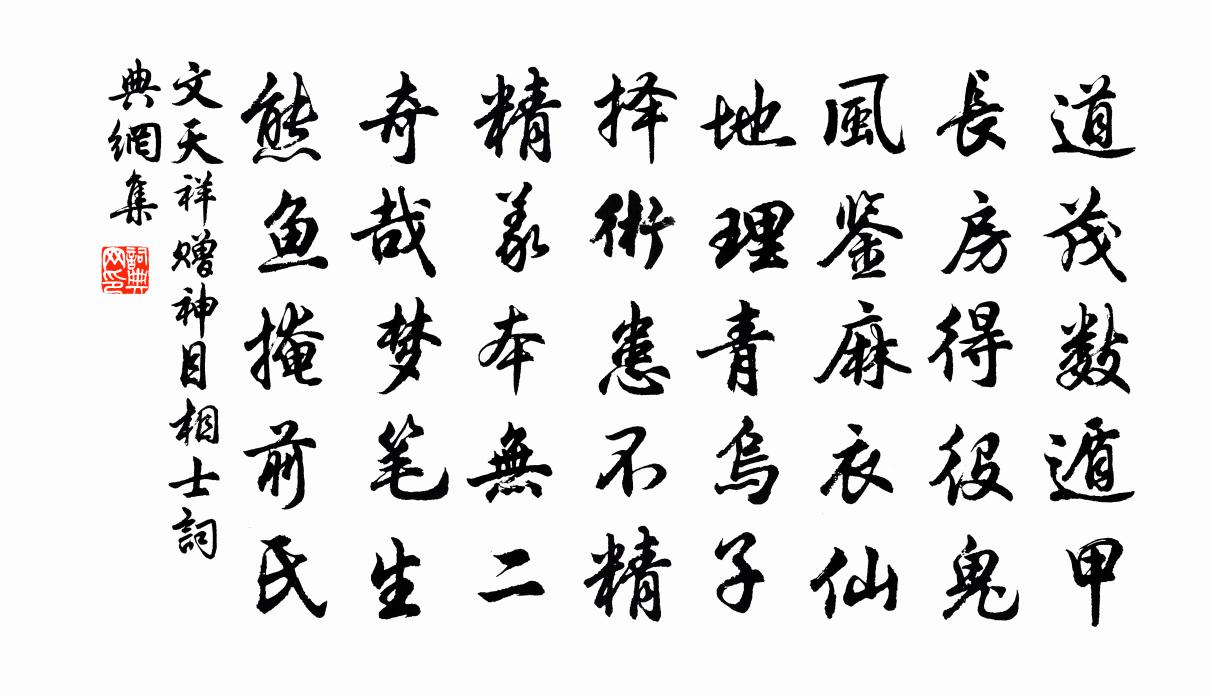 道茂数遁甲
長房得役鬼
風鉴麻衣仙
地理青烏子
择術患不精
精义本無二
奇哉梦笔生
熊鱼掩前氏
文天祥赠神目相士詞
典網集
詞典
网印